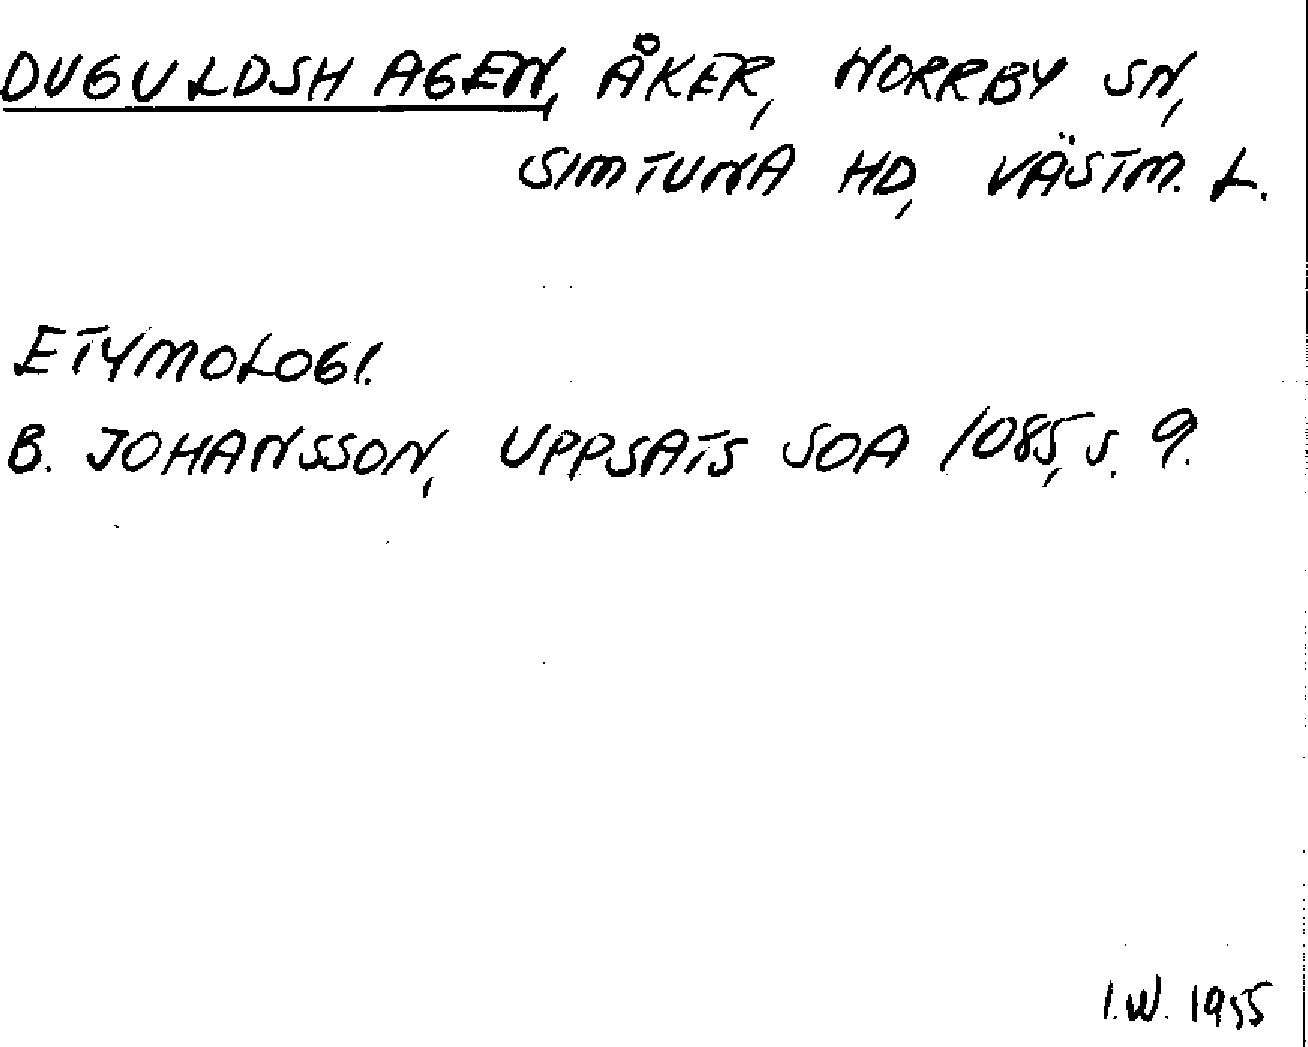 DUGULDSHAGEN, ÅKER, NORRBY SN,
SIMTUNA HD, VÄSTM. L.
ETYMOLOGI.
B. JOHANSSON, UPPSATS SOA 1085, S. 9.
I.W. 1955